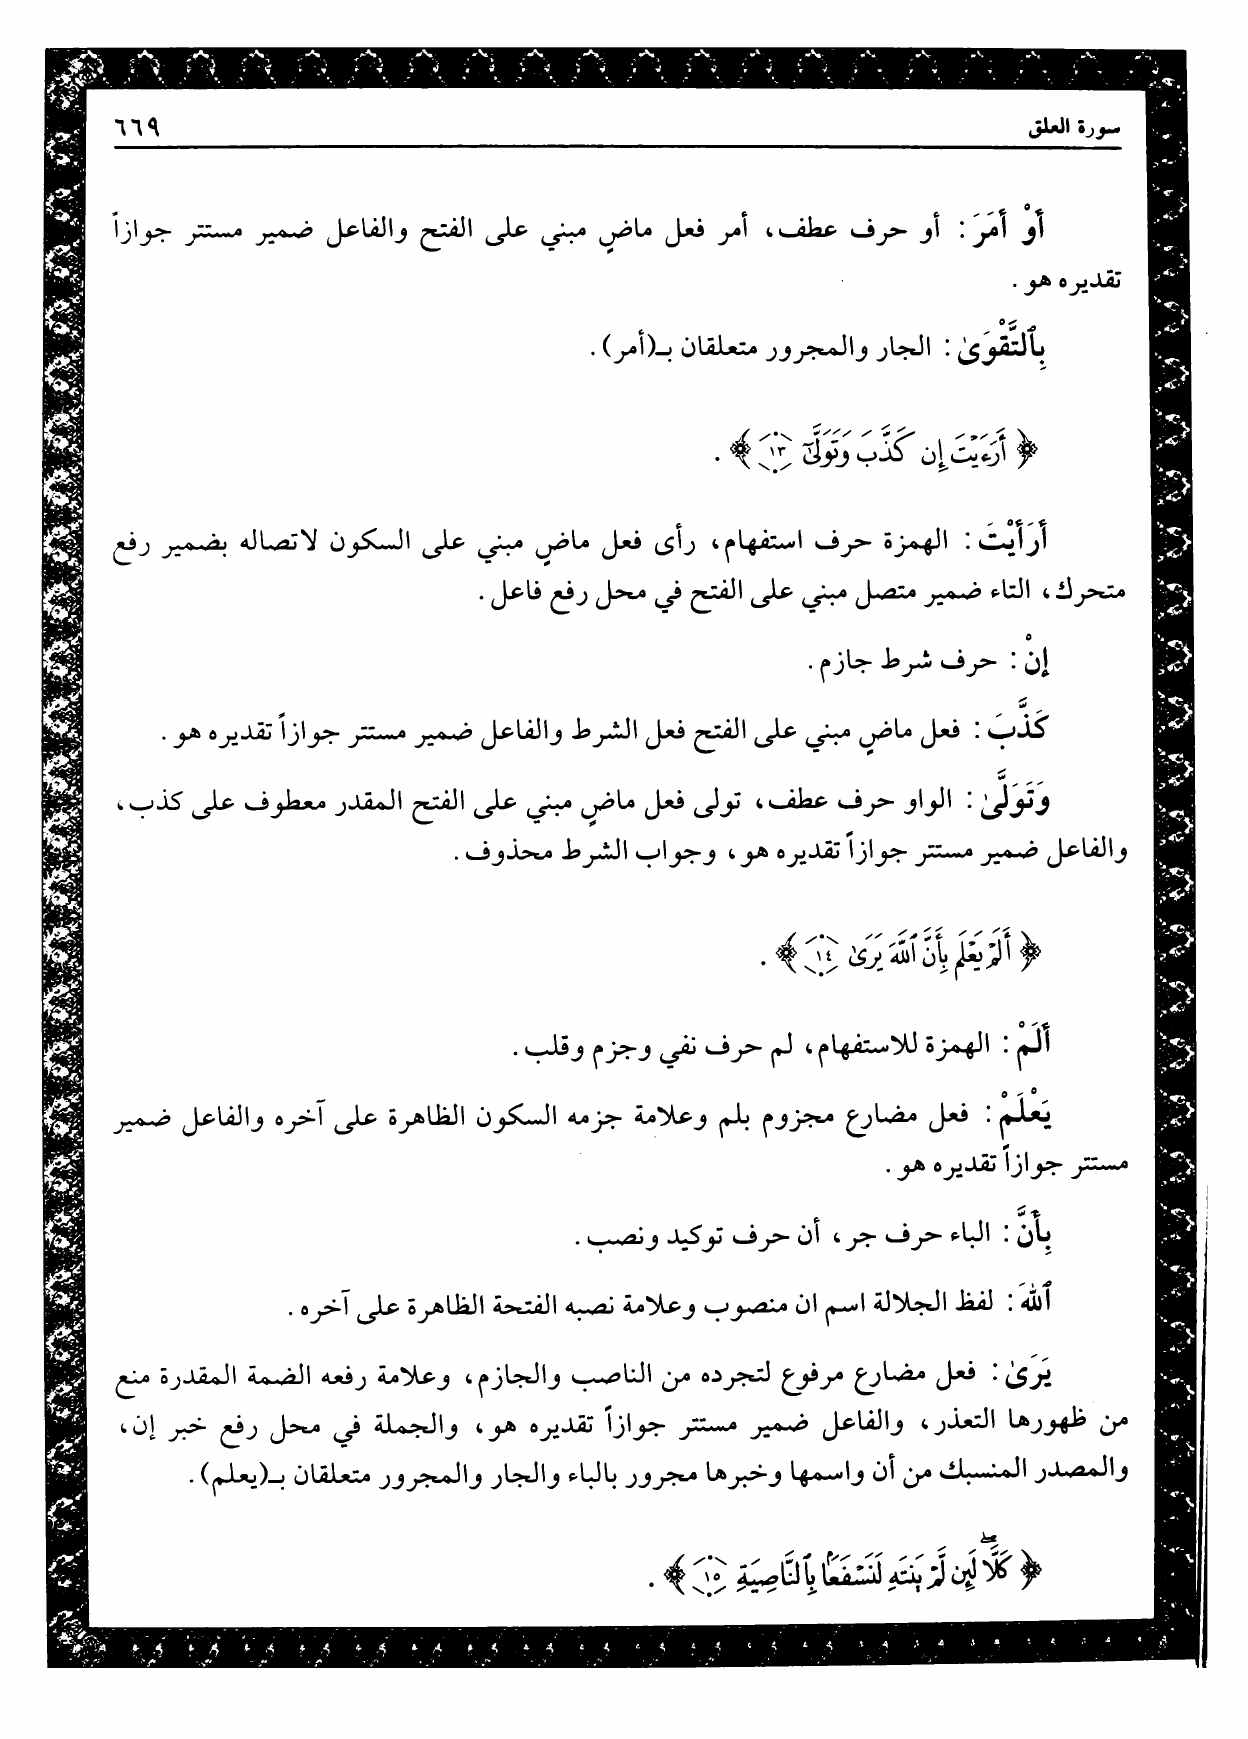 سورة العلق ٦٦٩
أَوْ أَمَرَ : أو حرف عطف، أمر فعل ماضٍ مبني على الفتح والفاعل ضمير مستتر جوازاً
تقديره هو .
بِٱلتَّقْوَىٰ : الجار والمجرور متعلقان بـ(أمر).
﴿ أَرَءَيْتَ إِن كَذَّبَ وَتَوَلَّىٰٓ ١٣ ﴾ .
أَرَأَيْتَ : الهمزة حرف استفهام، رأى فعل ماضٍ مبني على السكون لاتصاله بضمير رفع
متحرك، التاء ضمير متصل مبني على الفتح في محل رفع فاعل.
إِنْ : حرف شرط جازم .
كَذَّبَ : فعل ماضٍ مبني على الفتح فعل الشرط والفاعل ضمير مستتر جوازاً تقديره هو .
وَتَوَلَّىٰ : الواو حرف عطف، تولى فعل ماضٍ مبني على الفتح المقدر معطوف على كذب،
والفاعل ضمير مستتر جوازاً تقديره هو، وجواب الشرط محذوف.
﴿ أَلَمْ يَعْلَم بِأَنَّ ٱللَّهَ يَرَىٰ ١٤ ﴾ .
أَلَمْ : الهمزة للاستفهام، لم حرف نفي وجزم وقلب.
يَعْلَمْ : فعل مضارع مجزوم بلم وعلامة جزمه السكون الظاهرة على آخره والفاعل ضمير
مستتر جوازاً تقديره هو.
بِأَنَّ : الباء حرف جر، أن حرف توكيد ونصب.
ٱللهَ : لفظ الجلالة اسم ان منصوب وعلامة نصبه الفتحة الظاهرة على آخره.
يَرَىٰ : فعل مضارع مرفوع لتجرده من الناصب والجازم، وعلامة رفعه الضمة المقدرة منع
من ظهورها التعذر، والفاعل ضمير مستتر جوازاً تقديره هو، والجملة في محل رفع خبر إن،
والمصدر المنسبك من أن واسمها وخبرها مجرور بالباء والجار والمجرور متعلقان بـ(يعلم).
﴿ كَلَّا لَئِن لَّمْ يَنتَهِ لَنَسْفَعًۢا بِٱلنَّاصِيَةِ ١٥ ﴾ .